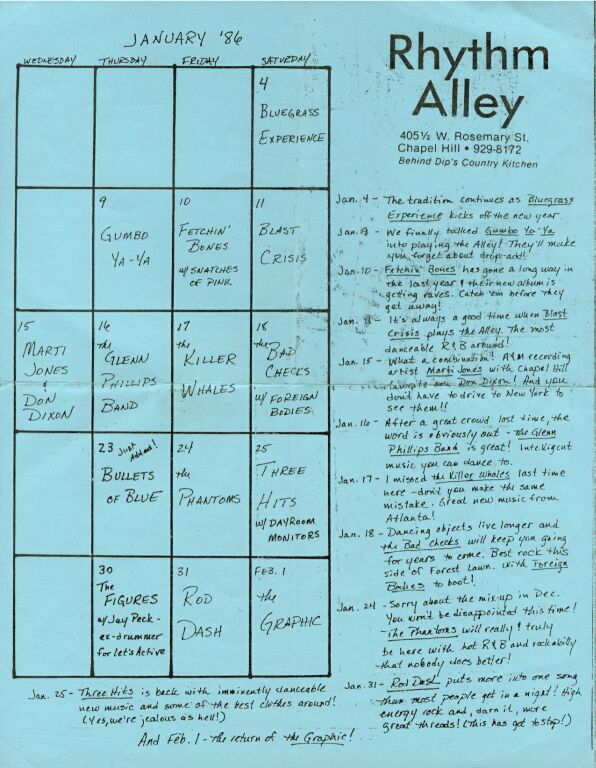 JANUARY '86
WEDNESDAY THURSDAY FRIDAY SATURDAY
4
BLUEGRASS
EXPERIENCE
9
GUMBO
YA-YA
10
FETCHIN'
BONES
W/ SNATCHES
OF PINK
11
BLAST
CRISIS
15
MARTI
JONES
&
DON
DIXON
16
the
GLENN
PHILLIPS
BAND
17
the
KILLER
WHALES
18
the BAD
CHECKS
W/ FOREIGN
BODIES
23 Just Added!
BULLETS
OF BLUE
24
the
PHANTOMS
25
THREE
HITS
W/ DAYROOM
MONITORS
30
The
FIGURES
w/ Jay Peck -
ex-drummer
for Let's Active
31
ROD
DASH
FEB. 1
the
GRAPHIC
Rhythm
Alley
405½ W. Rosemary St.
Chapel Hill • 929-8172
Behind Dip's Country Kitchen
Jan. 4 - The tradition continues as Bluegrass
Experience kicks off the new year.
Jan. 9 - We finally talked Gumbo Ya-Ya
into playing the Alley! They'll make
you forget about drop-add!
Jan. 10 - Fetchin' Bones has gone a long way in
the last year & their new album is
getting raves. Catch 'em before they
get away!
Jan. 11 - It's always a good time when Blast
Crisis plays the Alley. The most
danceable R&B around!
Jan. 15 - What a combination! A&M recording
artist Marti Jones with Chapel Hill
favorite son, Don Dixon! And you
don't have to drive to New York to
see them!!
Jan. 16 - After a great crowd last time, the
word is obviously out - the Glenn
Phillips Band is great! Intelligent
music you can dance to.
Jan. 17 - I missed the Killer Whales last time
here - don't you make the same
mistake. Great new music from
Atlanta!
Jan. 18 - Dancing objects live longer and
the Bad Checks will keep you going
for years to come. Best rock this
side of Forest Lawn. With Foreign
Bodies to boot!
Jan. 24 - Sorry about the mix-up in Dec.
You won't be disappointed this time!
The Phantoms will really & truly
be here with hot R&B and rockabilly
that nobody does better!
Jan. 31 - Rod Dash puts more into one song
than most people get in a night! High
energy rock and, darn it, more
great threads! (This has got to stop!)
Jan. 25 - Three Hits is back with imminently danceable
new music and some of the best clothes around!
(Yes, we're jealous as hell!)
And Feb. 1 - the return of the Graphic!